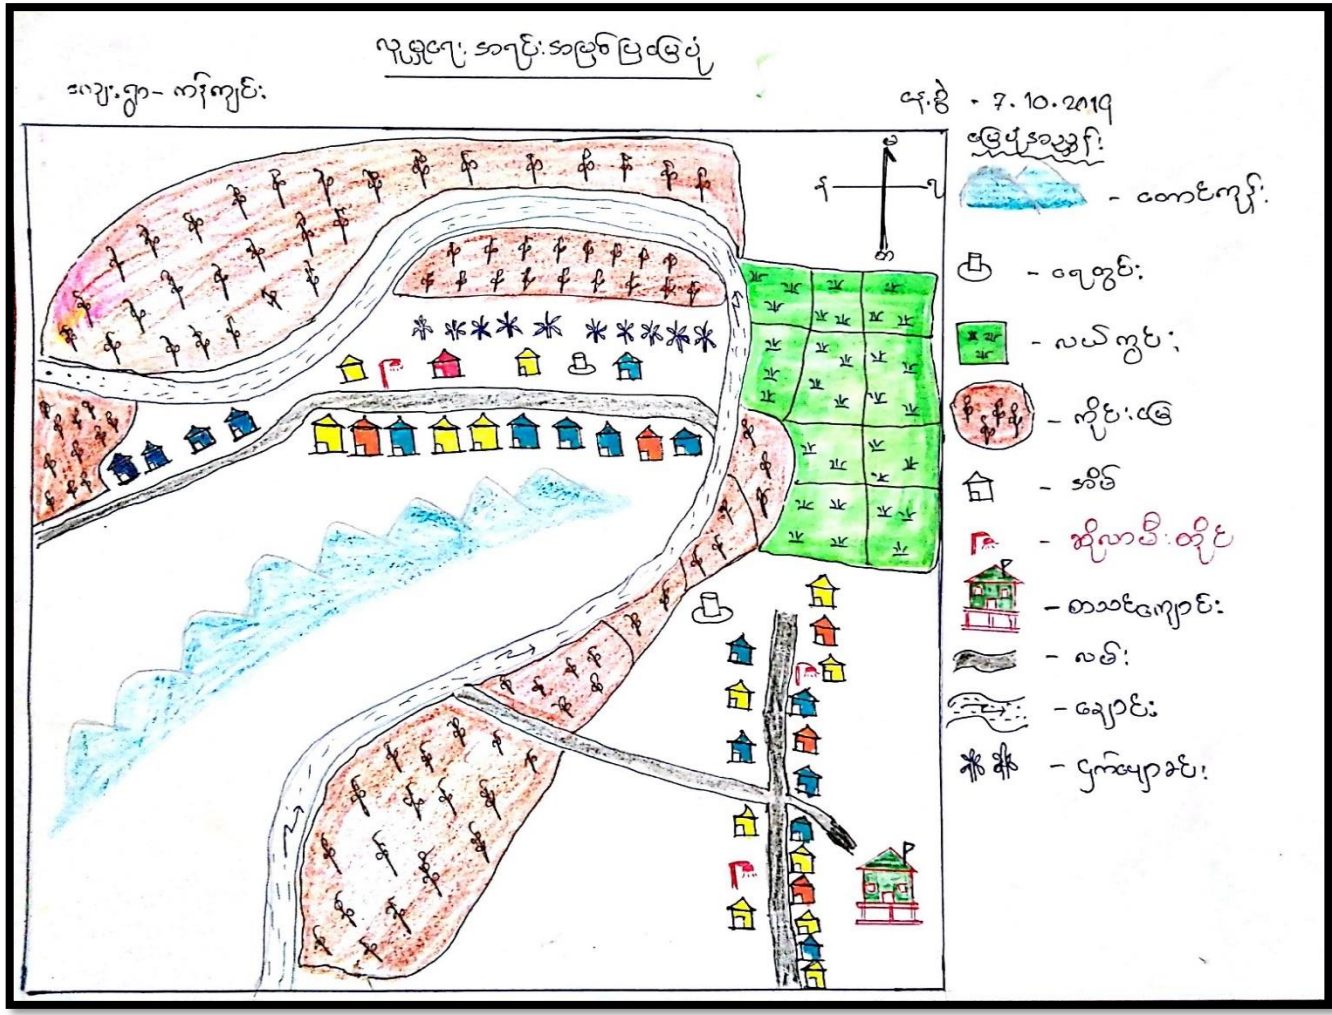 လူမှုရေး အရင်းအမြစ်ပြမြေပုံ
ကျေးရွာ - ကိန်ကျင်း
နေ့စွဲ - 7.10.2019
မြေပုံအညွှန်း
မ
န
ရ
တ
- တောင်ကုန်း
- ရေတွင်း
- လယ်ကွင်း
- ကိုင်းမြေ
- အိမ်
- ဆိုလာမီးတိုင်
- စာသင်ကျောင်း
- လမ်း
- ချောင်း
- ငှက်ပျောခင်း